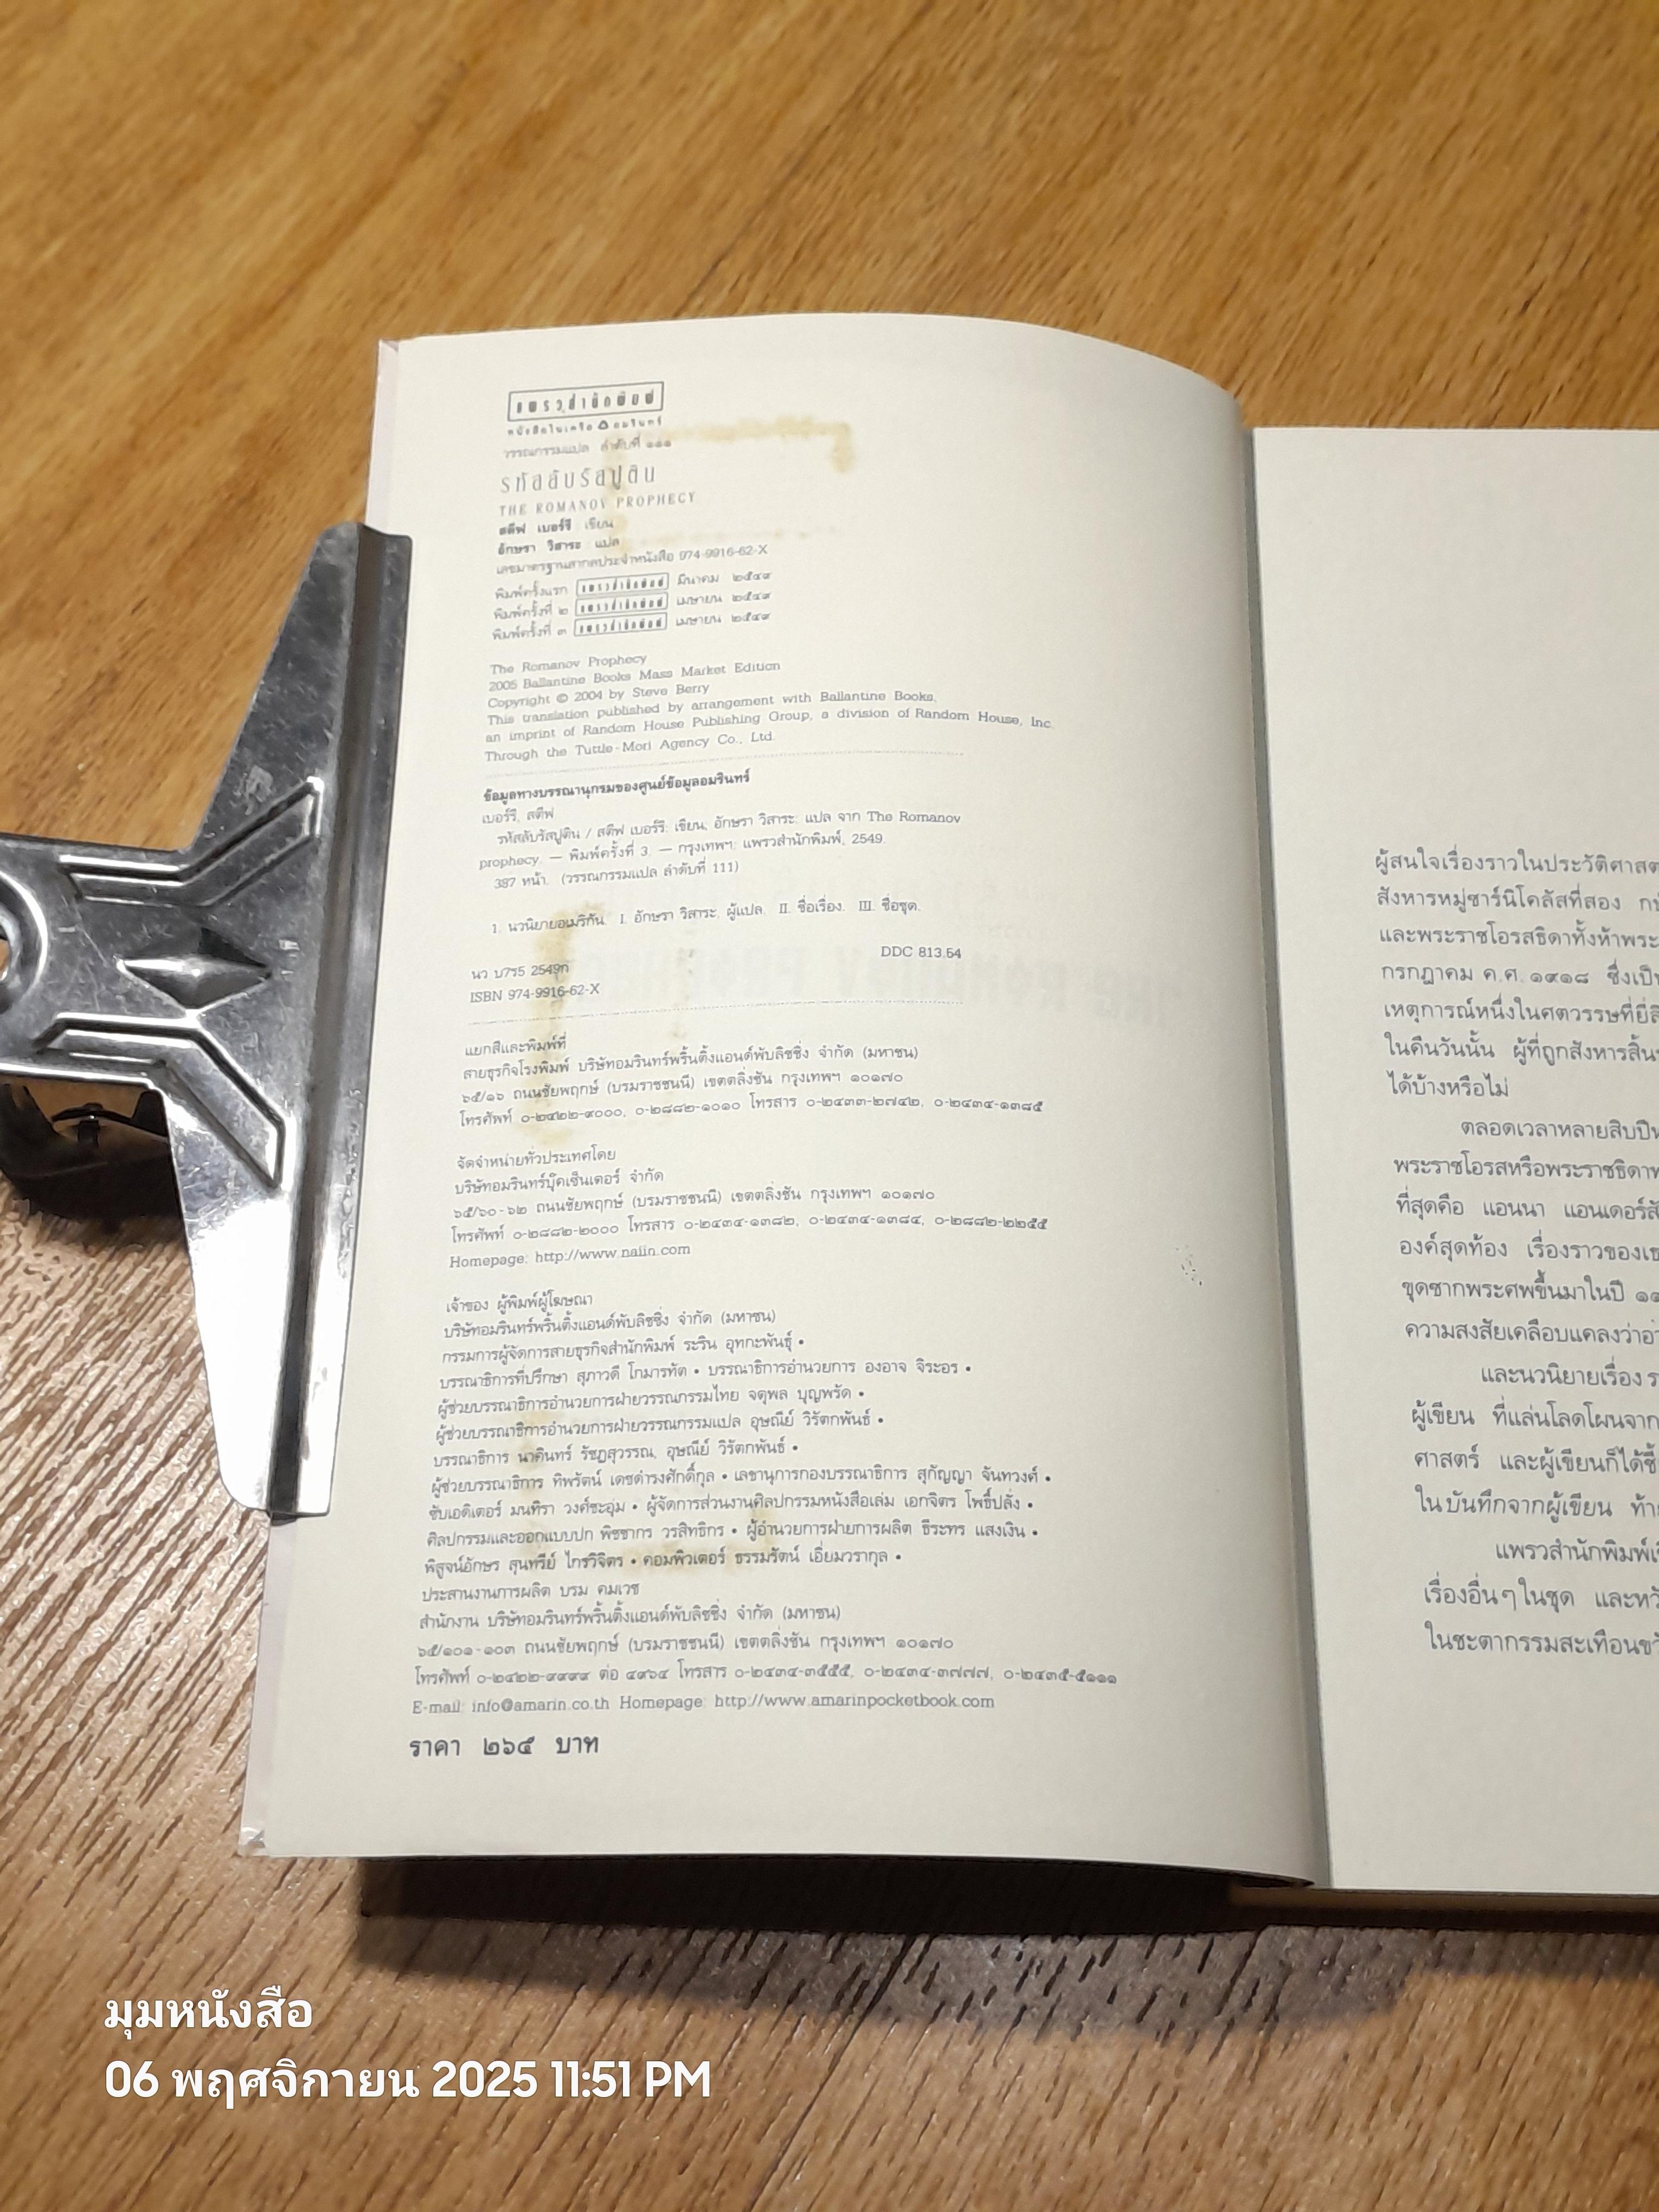 แพรวสำนักพิมพ์
หนังสือในเครือ อมรินทร์
วรรณกรรมแปล ลำดับที่ ๑๑๑
รหัสลับรัสปูติน
THE ROMANOV PROPHECY
สตีฟ เบอร์รี เขียน
อักษรา วิสาระ แปล
เลขมาตรฐานสากลประจำหนังสือ 974-9916-62-X
พิมพ์ครั้งแรก แพรวสำนักพิมพ์ มีนาคม ๒๕๔๙
พิมพ์ครั้งที่ ๒ แพรวสำนักพิมพ์ เมษายน ๒๕๔๙
พิมพ์ครั้งที่ ๓ แพรวสำนักพิมพ์ เมษายน ๒๕๔๙
The Romanov Prophecy
2005 Ballantine Books Mass Market Edition
Copyright © 2004 by Steve Berry
This translation published by arrangement with Ballantine Books,
an imprint of Random House Publishing Group, a division of Random House, Inc.
Through the Tuttle-Mori Agency Co., Ltd.
ข้อมูลทางบรรณานุกรมของศูนย์ข้อมูลอมรินทร์
เบอร์รี, สตีฟ
รหัสลับรัสปูติน / สตีฟ เบอร์รี: เขียน; อักษรา วิสาระ: แปล จาก The Romanov
prophecy. — พิมพ์ครั้งที่ 3. — กรุงเทพฯ: แพรวสำนักพิมพ์, 2549.
387 หน้า. (วรรณกรรมแปล ลำดับที่ 111)
1. นวนิยายอเมริกัน. I. อักษรา วิสาระ, ผู้แปล. II. ชื่อเรื่อง. III. ชื่อชุด.
DDC 813.54
นว บ7ร5 2549ก
ISBN 974-9916-62-X
แยกสีและพิมพ์ที่
สายธุรกิจโรงพิมพ์ บริษัทอมรินทร์พริ้นติ้งแอนด์พับลิชชิ่ง จำกัด (มหาชน)
๖๕/๑๖ ถนนชัยพฤกษ์ (บรมราชชนนี) เขตตลิ่งชัน กรุงเทพฯ ๑๐๑๗๐
โทรศัพท์ ๐-๒๔๒๒-๙๐๐๐, ๐-๒๘๘๒-๑๐๑๐ โทรสาร ๐-๒๔๓๓-๒๗๔๒, ๐-๒๔๓๔-๑๓๘๕
จัดจำหน่ายทั่วประเทศโดย
บริษัทอมรินทร์บุ๊คเซ็นเตอร์ จำกัด
๖๕/๖๐-๖๒ ถนนชัยพฤกษ์ (บรมราชชนนี) เขตตลิ่งชัน กรุงเทพฯ ๑๐๑๗๐
โทรศัพท์ ๐-๒๘๘๒-๒๐๐๐ โทรสาร ๐-๒๔๓๔-๑๓๘๒, ๐-๒๔๓๔-๑๓๘๔, ๐-๒๘๘๒-๒๒๕๕
Homepage: http://www.naiin.com
เจ้าของ ผู้พิมพ์ผู้โฆษณา
บริษัทอมรินทร์พริ้นติ้งแอนด์พับลิชชิ่ง จำกัด (มหาชน)
กรรมการผู้จัดการสายธุรกิจสำนักพิมพ์ ระริน อุทกะพันธุ์ •
บรรณาธิการที่ปรึกษา สุภาวดี โกมารทัต • บรรณาธิการอำนวยการ องอาจ จิระอร •
ผู้ช่วยบรรณาธิการอำนวยการฝ่ายวรรณกรรมไทย จตุพล บุญพรัด •
ผู้ช่วยบรรณาธิการอำนวยการฝ่ายวรรณกรรมแปล อุษณีย์ วิรัตกพันธ์ •
บรรณาธิการ นาตินทร์ รัชฎสุวรรณ, อุษณีย์ วิรัตกพันธ์ •
ผู้ช่วยบรรณาธิการ ทิพรัตน์ เดชดำรงศักดิ์กุล • เลขานุการกองบรรณาธิการ สุกัญญา จันทวงศ์ •
ซับเอดิเตอร์ มนทิรา วงศ์ชะอุ่ม • ผู้จัดการส่วนงานศิลปกรรมหนังสือเล่ม เอกจิตร โพธิ์ปลั่ง •
ศิลปกรรมและออกแบบปก พิชชากร วรสิทธิกร • ผู้อำนวยการฝ่ายการผลิต ธีระทร แสงเงิน •
พิสูจน์อักษร สุนทรีย์ ไกรวิจิตร • คอมพิวเตอร์ ธรรมรัตน์ เอี่ยมวรากุล •
ประสานงานการผลิต บรม คมเวช
สำนักงาน บริษัทอมรินทร์พริ้นติ้งแอนด์พับลิชชิ่ง จำกัด (มหาชน)
๖๕/๑๐๑-๑๐๓ ถนนชัยพฤกษ์ (บรมราชชนนี) เขตตลิ่งชัน กรุงเทพฯ ๑๐๑๗๐
โทรศัพท์ ๐-๒๔๒๒-๙๙๙๙ ต่อ ๔๙๖๔ โทรสาร ๐-๒๔๓๔-๓๕๕๕, ๐-๒๔๓๔-๓๗๗๗, ๐-๒๔๓๕-๕๑๑๑
E-mail: info@amarin.co.th Homepage: http://www.amarinpocketbook.com
ราคา ๒๖๕ บาท
ผู้สนใจเรื่องราวในประวัติศาสต
สังหารหมู่ซาร์นิโคลัสที่สอง
และพระราชโอรสธิดาทั้งห้าพระ
กรกฎาคม ค.ศ. ๑๙๑๘ ซึ่งเป็
เหตุการณ์หนึ่งในศตวรรษที่ยี่สิ
ในคืนวันนั้น ผู้ที่ถูกสังหารสิ้น
ได้บ้างหรือไม่
ตลอดเวลาหลายสิบปี
พระราชโอรสหรือพระราชธิดา
ที่สุดคือ แอนนา แอนเดอร์สั
องค์สุดท้อง เรื่องราวของเธ
ขุดซากพระศพขึ้นมาในปี
ความสงสัยเคลือบแคลงว่าอ
และนวนิยายเรื่อง ร
ผู้เขียน ที่แล่นโลดโผนจาก
ศาสตร์ และผู้เขียนก็ได้ชี้
ในบันทึกจากผู้เขียน ท้า
แพรวสำนักพิมพ์เ
เรื่องอื่นๆ ในชุด และหวั
ในชะตากรรมสะเทือนขวั
มุมหนังสือ
06 พฤศจิกายน 2025 11:51 PM